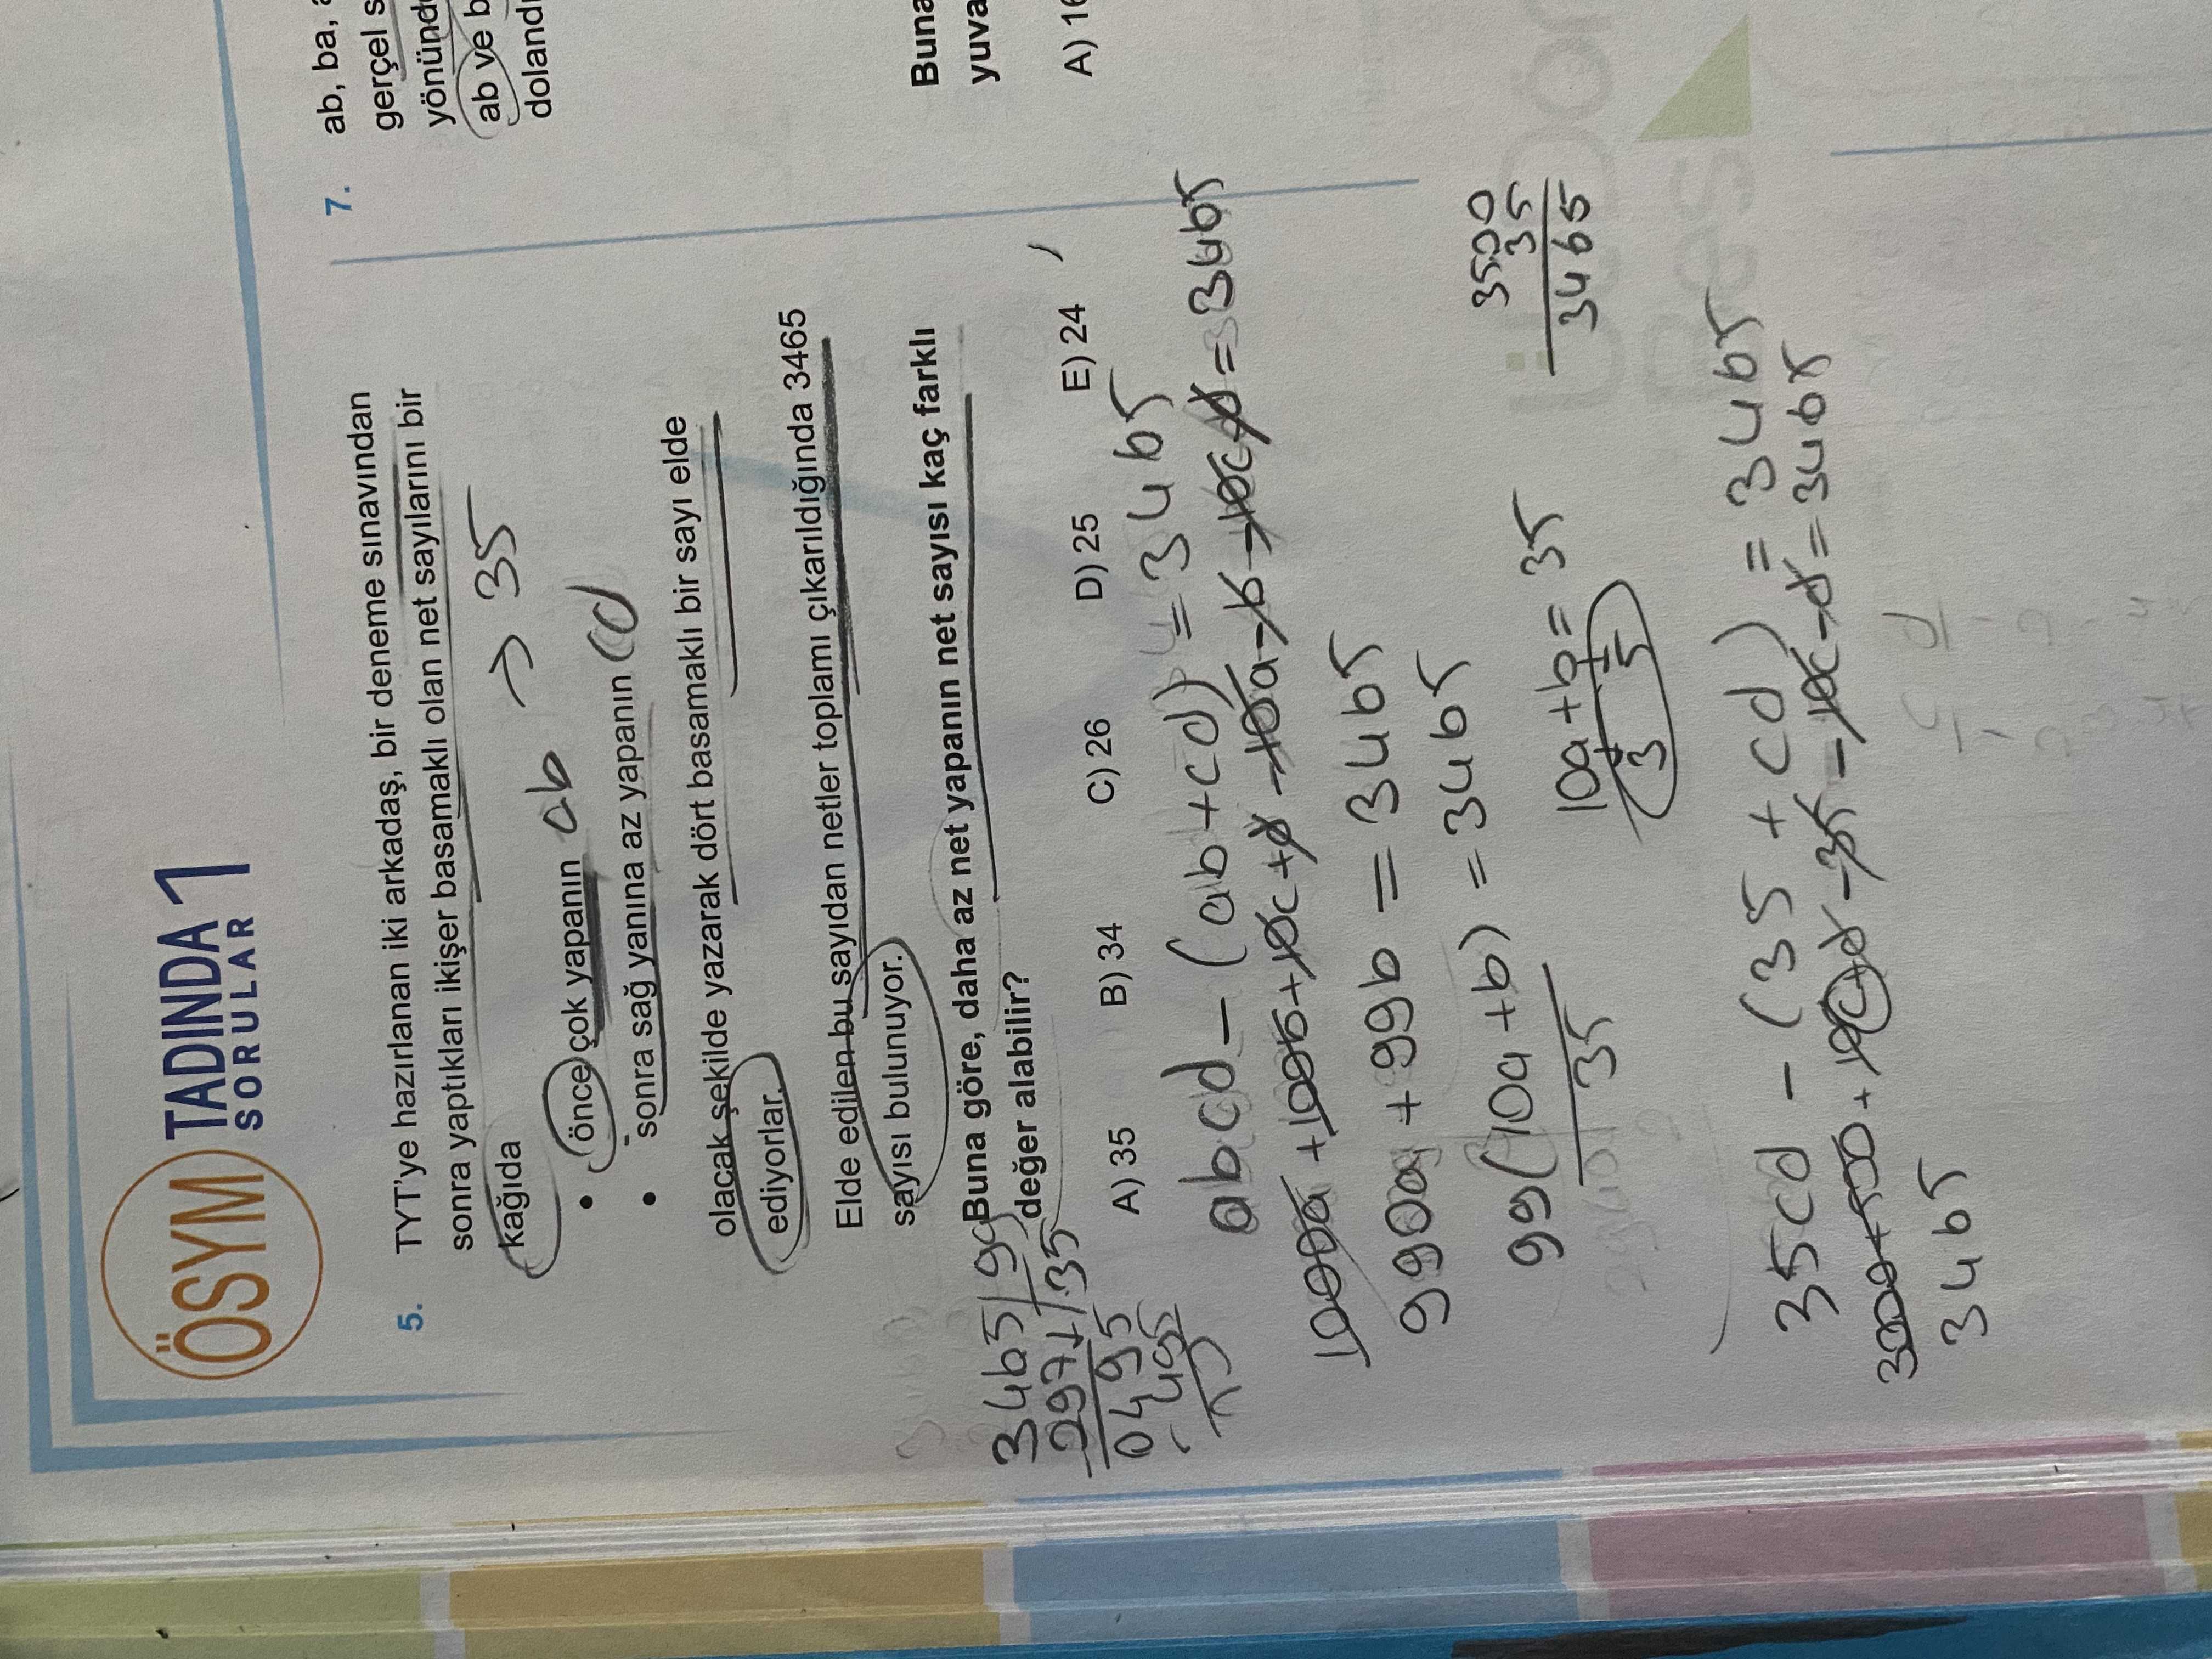 ÖSYM TADINDA 1
SORULAR
5. TYT'ye hazırlanan iki arkadaş, bir deneme sınavından
sonra yaptıkları ikişer basamaklı olan net sayılarını bir
kağıda → 35
• önce çok yapanın ab
• sonra sağ yanına az yapanın cd
olacak şekilde yazarak dört basamaklı bir sayı elde
ediyorlar.
Elde edilen bu sayıdan netler toplamı çıkarıldığında 3465
sayısı bulunuyor.
Buna göre, daha az net yapanın net sayısı kaç farklı
değer alabilir?
A) 35 B) 34 C) 26 D) 25 E) 24
3465 99
2971 35
0495
495
abcd - (ab + cd) = 3465
1000a + 100b + 10c + d - 10a - b - 10c - d = 3465
990a + 99b = 3465
99(10a + b) = 3465
35
10a + b = 35
3 5
3500
35
3465
35cd - (35 + cd) = 3465
3000 + 500 + 10c + d - 35 - 10c - d = 3465
3465
7. ab, ba,
gerçel s
yönünd
ab ve b
dolandı
Buna
yuva
A) 16